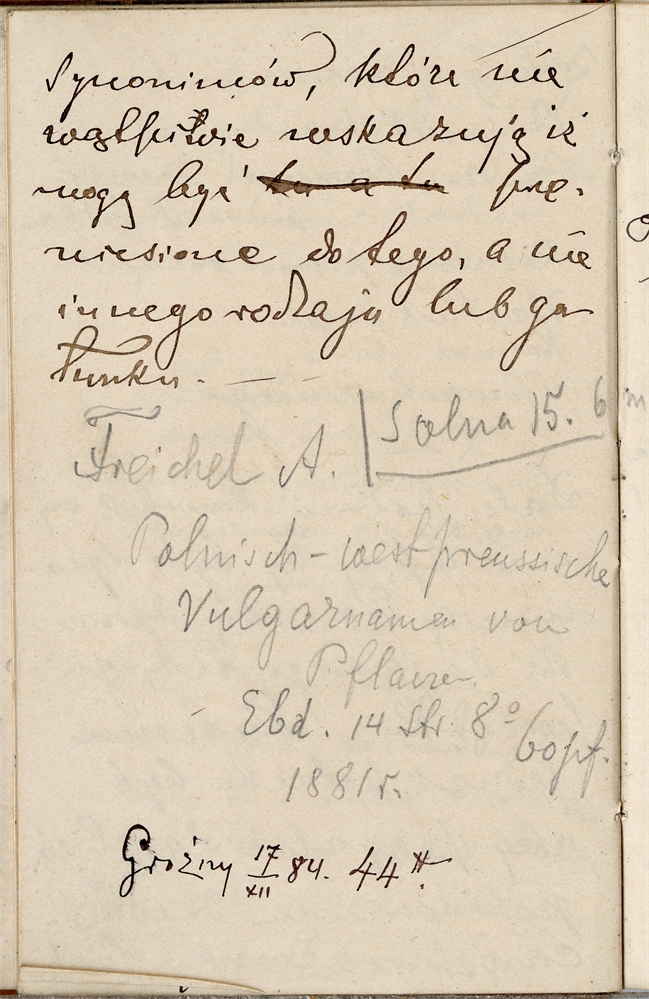 Synonimów, które nie
wątpliwie wskazują iż
mogą być tu a tu prze-
niesione do tego, a nie
innego rodzaju lub ga-
tunku. —
Treichel A. | Solna 15. 6
Polnisch-westpreussische
Vulgarnamen von
Pflanzen.
- Ebd. 14 str. 8° 60 pf.
1881 r.
Groźny 17/XII 84. 44